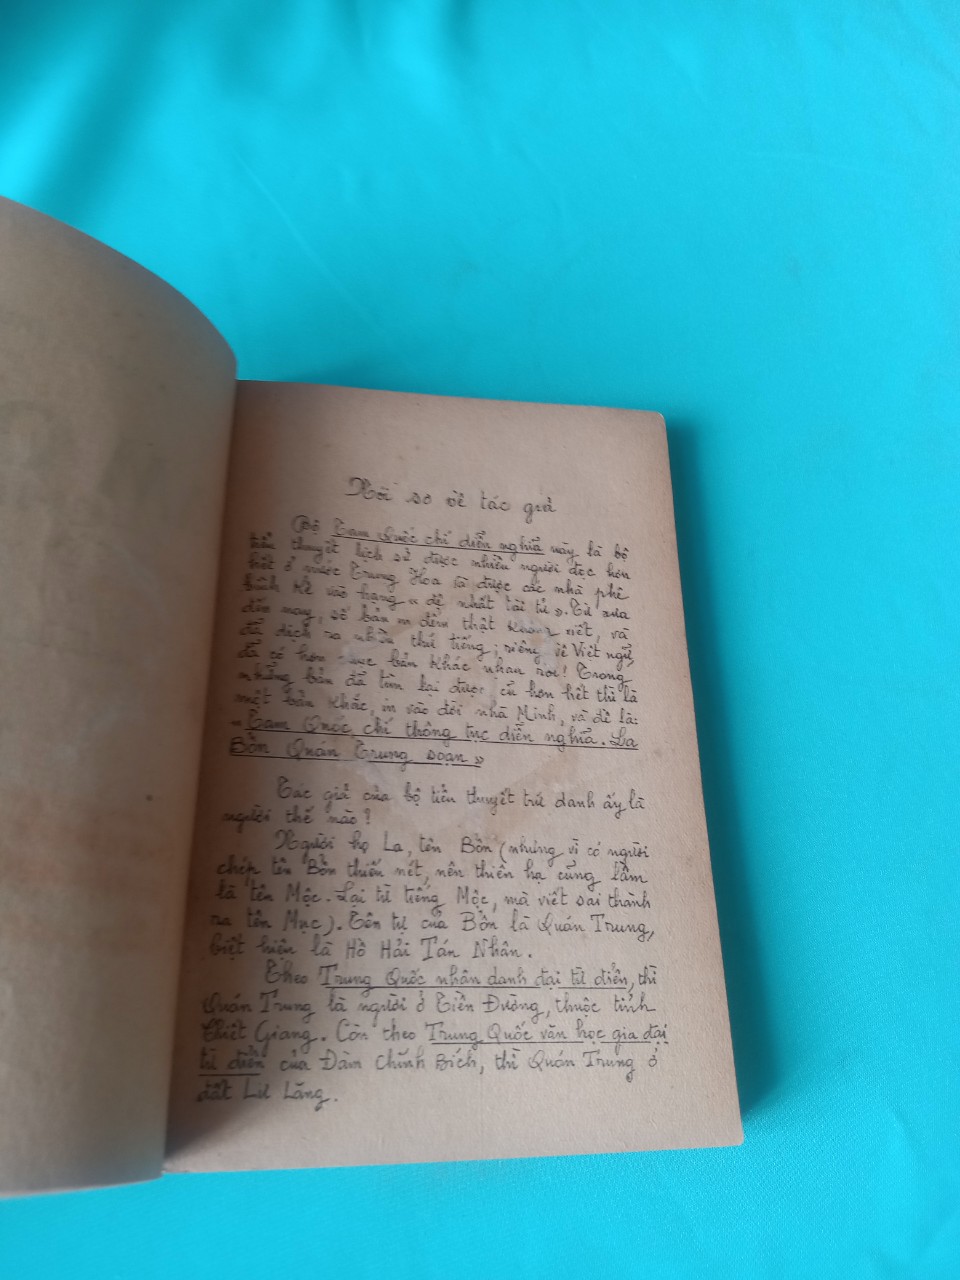 Nói sơ về tác giả
Bộ Tam Quốc chí diễn nghĩa này là bộ
tiểu thuyết lịch sử được nhiều người đọc hơn
hết ở nước Trung Hoa và được các nhà phê
bình kể vào hạng « đệ nhất tài tử ». Từ xưa
đến nay, số bản in đếm thật không xiết, và
đã dịch ra nhiều thứ tiếng; riêng về Việt ngữ,
đã có hơn bản khác nhau rồi! Trong
những bản đã tìm lại được, cũ hơn hết thì là
một bản khắc, in vào đời nhà Minh, và đề là:
« Tam Quốc chí thông tục diễn nghĩa. La
Bổn Quán Trung soạn »
Tác giả của bộ tiểu thuyết trứ danh ấy là
người thế nào?
Người họ La, tên Bổn (nhưng vì có người
chép tên Bổn thiếu nét, nên thiên hạ cũng lầm
là tên Mộc. Lại từ tiếng Mộc, mà viết sai thành
ra tên Mục). Tên tự của Bổn là Quán Trung,
biệt hiệu là Hồ Hải Tán Nhân.
Theo Trung Quốc nhân danh đại từ điển, thì
Quán Trung là người ở Tiền Đường, thuộc tỉnh
Chiết Giang. Còn theo Trung Quốc văn học gia đại
từ điển của Đàm Chính Bích, thì Quán Trung ở
đất Lư Lăng.